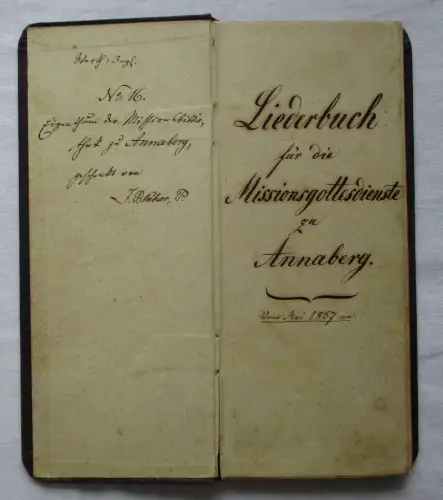 No 16.
Eigenthum der Missionsbiblio,
thek zu Annaberg,
geschenkt von
Liederbuch
für die
Missionsgottesdienste
zu
Annaberg.
Vom Mai 1867 an.